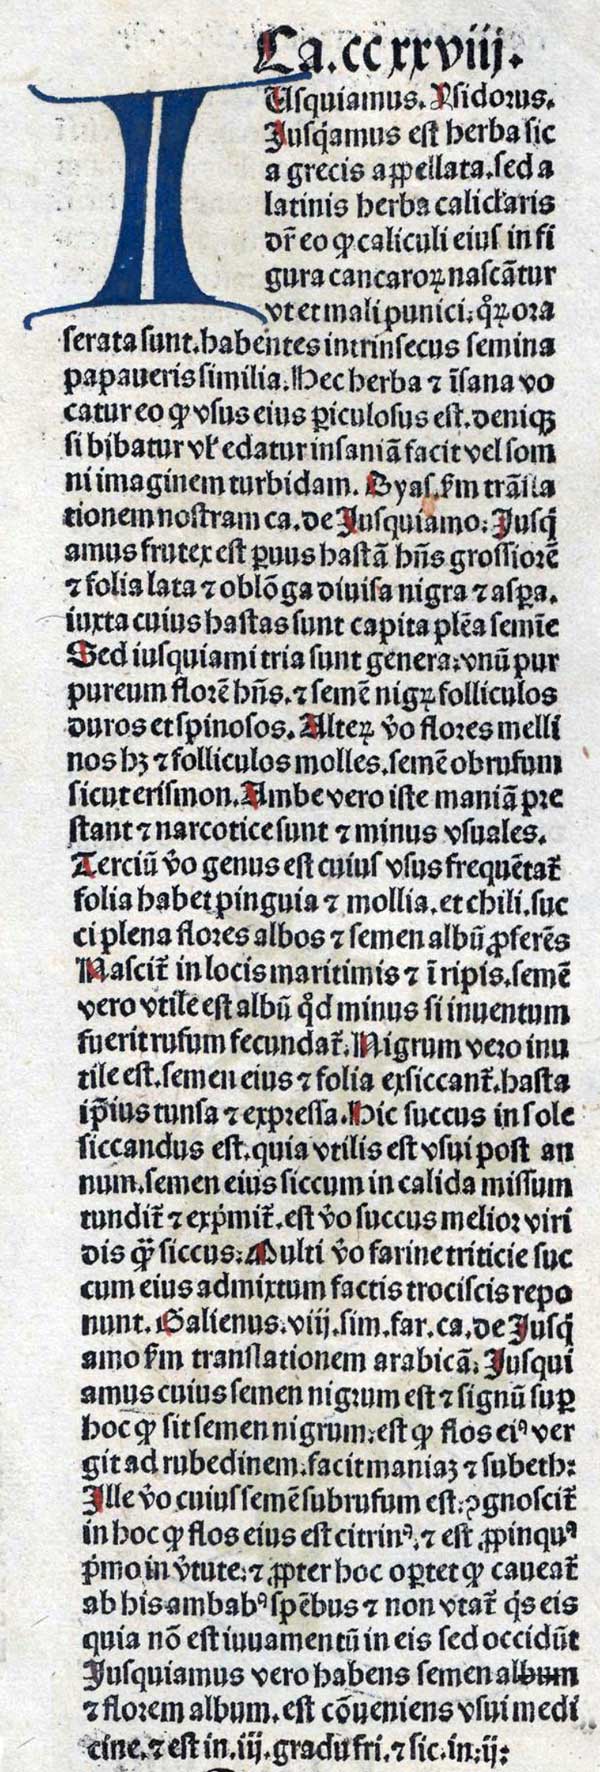 Ca.ccxxviij.
IUsquiamus. Ysidorus.
Jusq̄amus est herba sic
a grecis appellata.sed a
latinis herba calicularis
dr̄ eo ꝙ caliculi eius in fi
gura cancaroꝝ nascātur
vt et mali punici.q̄ꝝ ora
serata sunt.habentes intrinsecus semina
papaueris similia.Hec herba ⁊ īsana vo
catur eo ꝙ vsus eius ꝑiculosus est.deniqꝫ
si bibatur vł edatur insaniā facit vel som
ni imaginem turbidam. Dyas.ẜm trāsla
tionem nostram ca.de Jusquiamo. Jusq̄
amus frutex est ꝑuus hastā hn̄s grossiorē
⁊ folia lata ⁊ oblōga diuisa nigra ⁊ aspa.
iuxta cuius hastas sunt capita plēa semīe
Sed iusquiami tria sunt genera.vnū pur
pureum florē hn̄s.⁊ semē nigꝝ folliculos
duros et spinosos. Alteꝝ v̄o flores melli
nos hꝫ ⁊ folliculos molles.semē obrufum
sicut erismon.Ambe vero iste maniā pre
stant ⁊ narcotice sunt ⁊ minus vsuales.
Terciū v̄o genus est cuius vsus frequētat̄
folia habet pinguia ⁊ mollia.et chili.suc
ci plena flores albos ⁊ semen albū ꝓferēs
Nascit̄ in locis maritimis ⁊ ī ripis.semē
vero vtile est albū q̄d minus si inuentum
fuerit rufum fecundat̄.Nigrum vero inu
tile est.semen eius ⁊ folia exsiccant̄.hasta
ip̄ius tunsa ⁊ expressa.Hic succus in sole
siccandus est.quia vtilis est vsui post an
num.semen eius siccum in calida missum
tundit̄ ⁊ exp̄mit̄.est v̄o succus melior viri
dis qͣ̄ siccus. Multi v̄o farine triticie suc
cum eius admixtum factis trociscis repo
nunt. Galienus.viij.sim.far.ca.de Jusq̄
amo ẜm translationem arabicā. Jusqui
amus cuius semen nigrum est ⁊ signū suꝑ
hoc ꝙ sit semen nigrum.est ꝙ flos eiꝰ ver
git ad rubedinem.facit maniaꝫ ⁊ subeth:
Ille v̄o cuius semē subrufum est.ꝯgnoscit̄
in hoc ꝙ flos eius est citrinꝰ.⁊ est ꝓpinquꝰ
p̄mo in v̄tute.⁊ ꝓpter hoc oꝑtet ꝙ caueat̄
ab his ambabꝰ spēbus ⁊ non vtat̄ q̄s eis
quia nō est iuuamentū in eis sed occidūt
Jusquiamus vero habens semen album
⁊ florem album.est cōueniens vsui medi
cine.⁊ est in.iij.gradu fri.⁊ sic.in.ij: